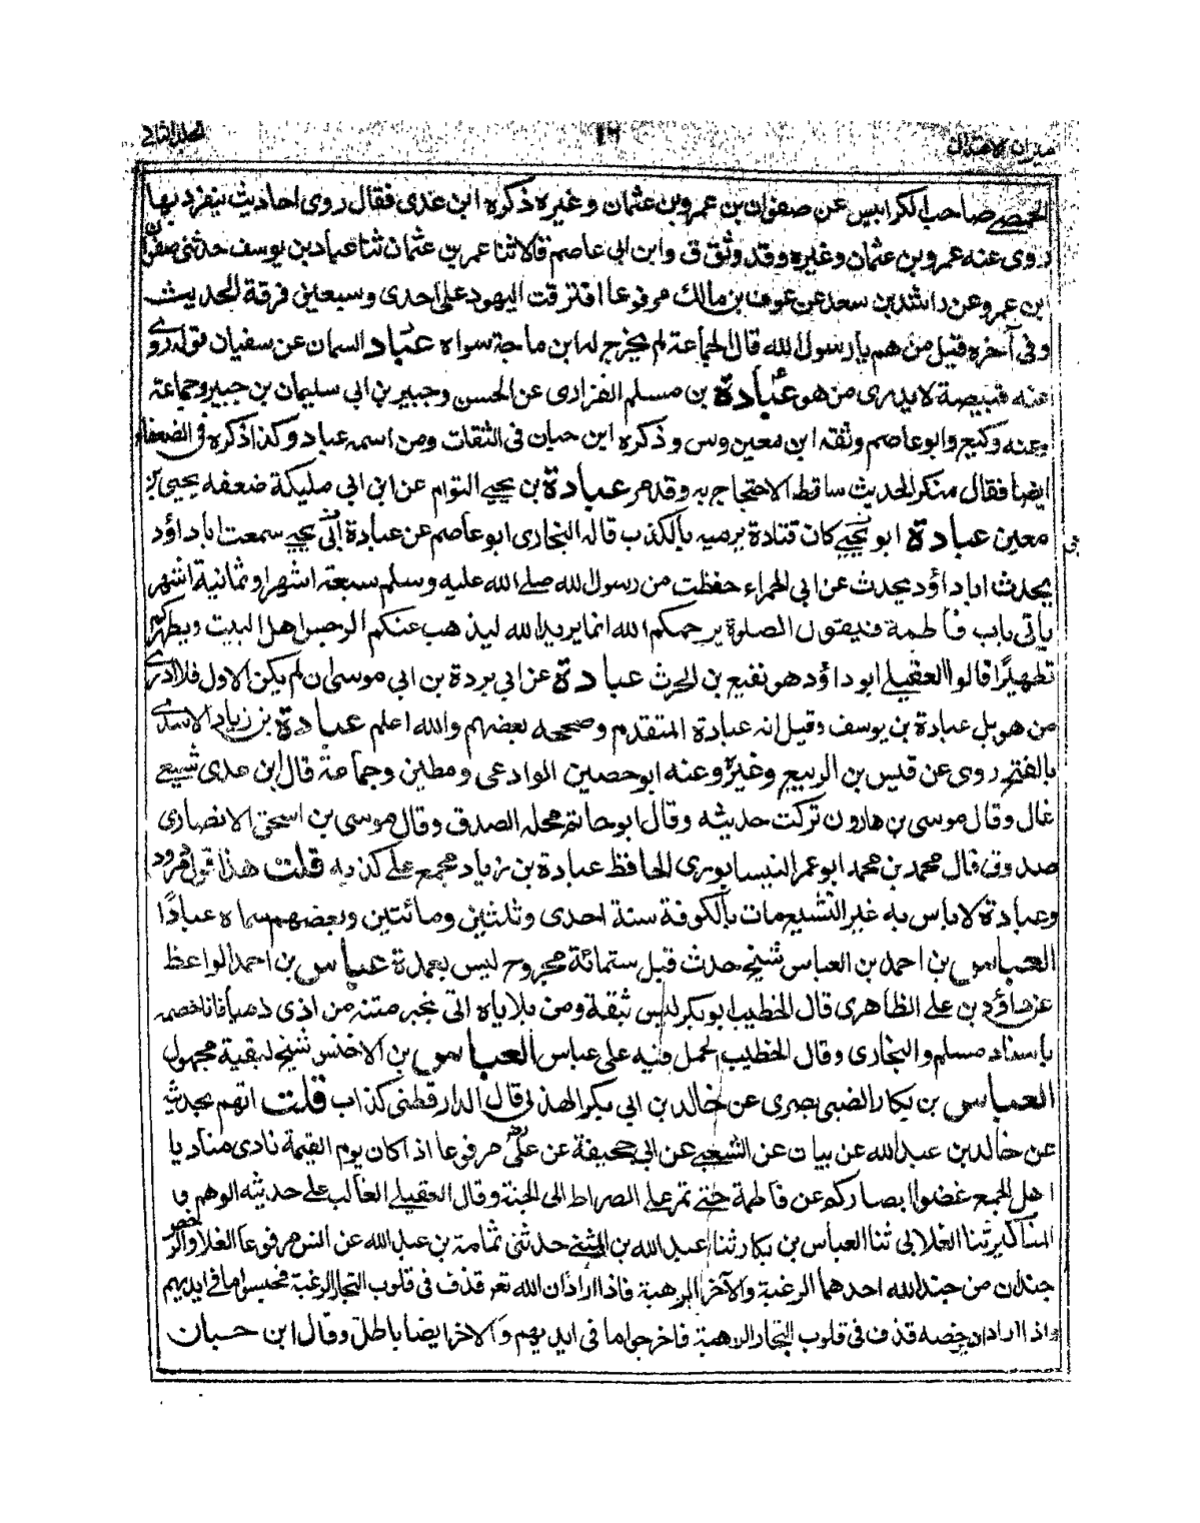 ميزان الاعتدال ١٦ المجلد الثاني
الحمصي صاحب الكرابيس عن صفوان بن عمرو بن عثمان وغيره ذكره ابن عدى فقال روى احاديث ينفرد بها
روى عنه عمرو بن عثمان وغيره وقد وثق ق وابن ابي عاصم قالا ثنا عمر بن عثمان ثنا عباد بن يوسف حدثنى صفوان
ابن عمرو عن راشد بن سعد عن عوف بن مالك مرفوعا افترقت اليهود على احدى وسبعين فرقة الحديث
وفى آخره قيل من هم يا رسول الله قال الجماعة لم يخرج له ابن ماجة سواه عباد السمان عن سفيان قوله روى
عنه قبيصة لا يدرى من هو عبادة بن مسلم الفزارى عن الحسن وجبير بن ابي سليمان بن جبير وجماعة
وعنه وكيع وابو عاصم وثقه ابن معين وس وذكره ابن حبان فى الثقات ومن اسمه عباد وكذا ذكره فى الضعفاء
ايضا فقال منكر الحديث ساقط الاحتجاج به وقد مر عبادة بن يحيى التوام عن ابن ابي مليكة ضعفه يحيى بن
معين عبادة ابو يحيى كان قتادة يرميه بالكذب قاله البخارى ابو عاصم عن عبادة ابي يحيى سمعت ابا داؤد
يحدث ابا داؤد يحدث عن ابي الحمراء حفظت من رسول الله صلى الله عليه وسلم سبعة اشهر او ثمانية اشهر
ياتى باب فاطمة فيقول الصلوة يرحمكم الله انما يريد الله ليذهب عنكم الرجس اهل البيت ويطهركم
تطهيرًا قال العقيلى ابو داؤد هو نفيع بن الحرث عبادة عن ابي بردة بن ابي موسى ان لم يكن الاول فلا ادرى
من هو بل عبادة بن يوسف وقيل انه عبادة المتقدم وصححه بعضهم والله اعلم عبادة بن زياد الاسدى
بالفتح روى عن قيس بن الربيع وغيره وعنه ابو حصين الوادعى ومطين وجماعة قال ابن عدى شيعى
غال وقال موسى بن هارون تركت حديثه وقال ابو حاتم محله الصدق وقال موسى بن اسحق الانصارى
صدوق قال محمد بن محمد ابو عمر النيسابورى الحافظ عبادة بن زياد مجمع على كذبه قلت هذا قول مردود
وعبادة لا باس به غير التشيع مات بالكوفة سنة احدى وثلثين ومائتين وبعضهم سماه عبادًا
العباس بن احمد بن العباس شيخ حدث قبل ستمائة مجروح ليس بعمدة عباس بن احمد الواعظ
عن داؤد بن على الظاهرى قال الخطيب ابو بكر ليس بثقة ومن بلاياه اتى بخبر متنه من اذى ذميا فانا خصمه
باسناد مسلم والبخارى وقال الخطيب الحمل فيه على عباس العباس بن الاخنس شيخ لبقية مجهول
العباس بن بكار الضبى بصرى عن خالد بن ابي بكر الهذلى قال الدارقطنى كذاب قلت اتهم بحديثه
عن خالد بن عبد الله عن بيان عن الشعبى عن ابي جحيفة عن على مرفوعا اذا كان يوم القيمة نادى مناد يا
اهل الجمع غضوا ابصاركم عن فاطمة حتى تمر على الصراط الى الجنة وقال العقيلى الغالب على حديثه الوهم و
المناكير ثنا الغلابى ثنا العباس بن بكار ثنا عبد الله بن المثنى حدثنى ثمامة بن عبد الله عن انس مرفوعا الغلا والرخص
جندان من جند الله احدهما الرغبة والآخر الرهبة فاذا اراد ان الله تعر قذف فى قلوب التجار الرغبة فحبسوا ما فى ايديهم
واذا اراد ان يرخصه قذف فى قلوب التجار الرهبة فاخرجوا ما فى ايديهم والاخر ايضا باطل وقال ابن حبان